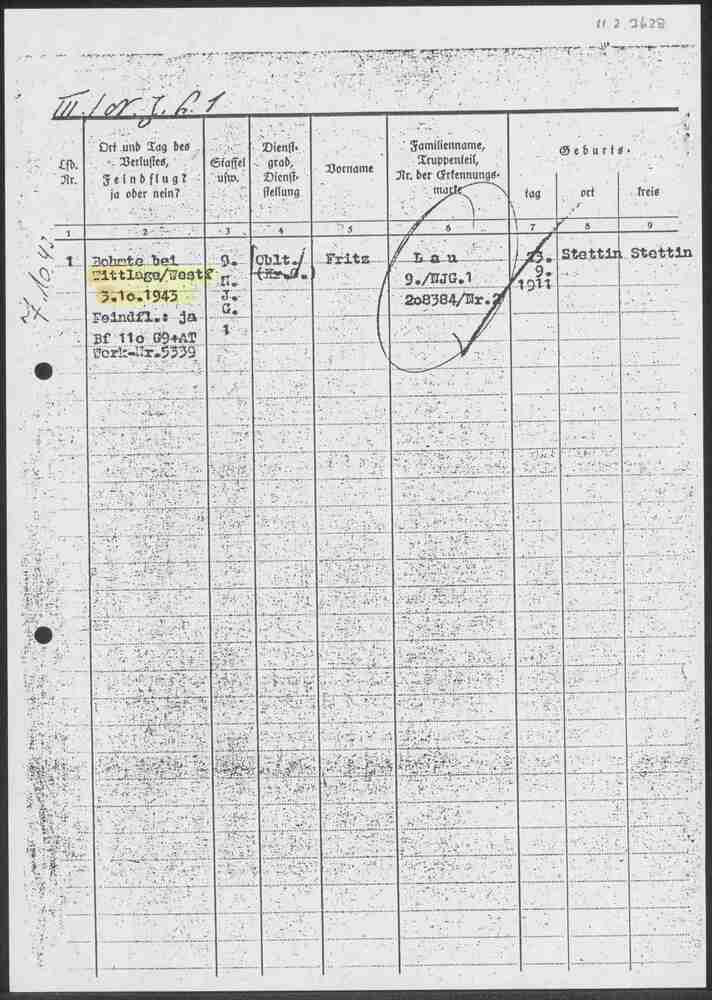 11.2.2628
III./N.J.G. 1
Lfd. Nr.
Ort und Tag des Verlustes, Feindflug? ja oder nein?
Staffel usw.
Dienst- grad, Dienst- stellung
Vorname
Familienname, Truppenteil, Nr. der Erkennungs- marke
Geburts-
tag
ort
kreis
1 2 3 4 5 6 7 8 9
7.10.43
1 Bohmte bei 9. Oblt./ Fritz Lau 23. Stettin Stettin
Wittlage/Westf N. (Kr.O.) 9./NJG.1 9.
3.10.1943 J. 208384/Nr.2 1911
Feindfl.: ja G.
Bf 110 G9+AT 1
Werk-Nr.5339